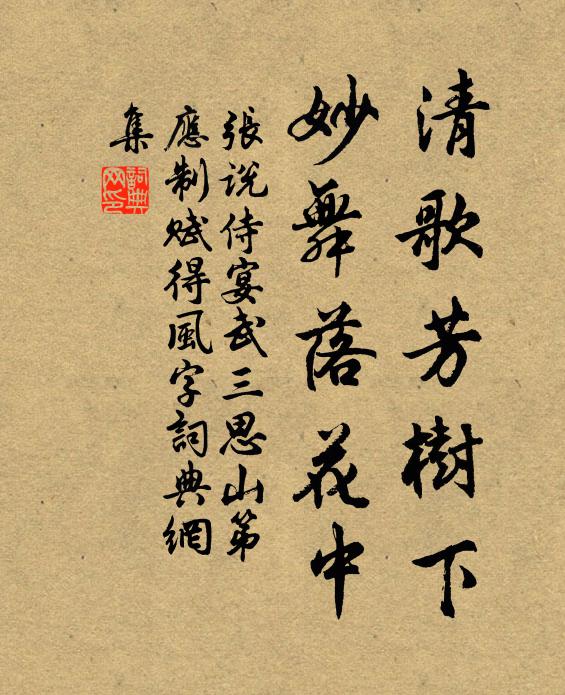 清歌芳樹下
妙舞落花中
張說侍宴武三思山第
應制賦得風字詞典網
集
詞典
网印